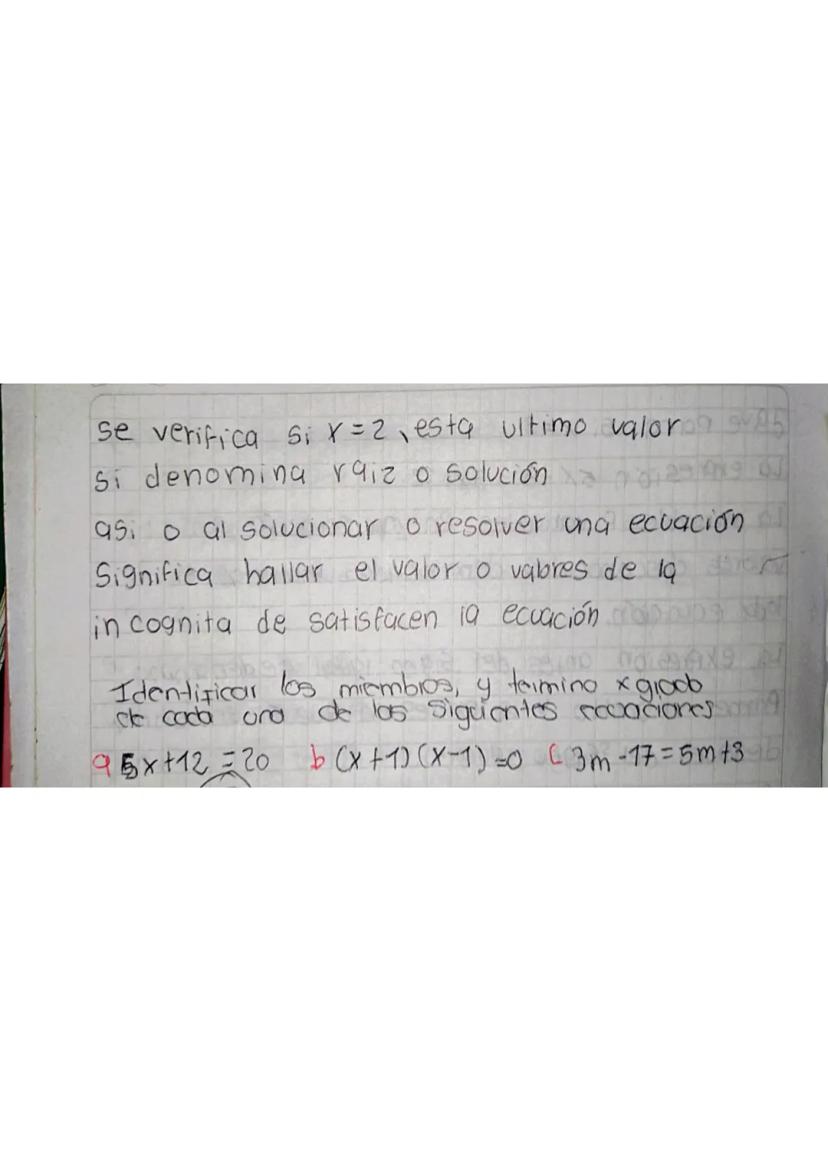 se verifica si x = 2, esta ultimo valor
si denomina raiz o solución
asi o al solucionar o resolver una ecuación
significa hallar el valor o valores de la
incognita de satisfacen la ecuación
Identificar los miembros, y termino x grado
de cada una de las siguientes ecuaciones
a 5x+12 = 20 b (x+1)(x-1)=0 c 3m-17=5m+3